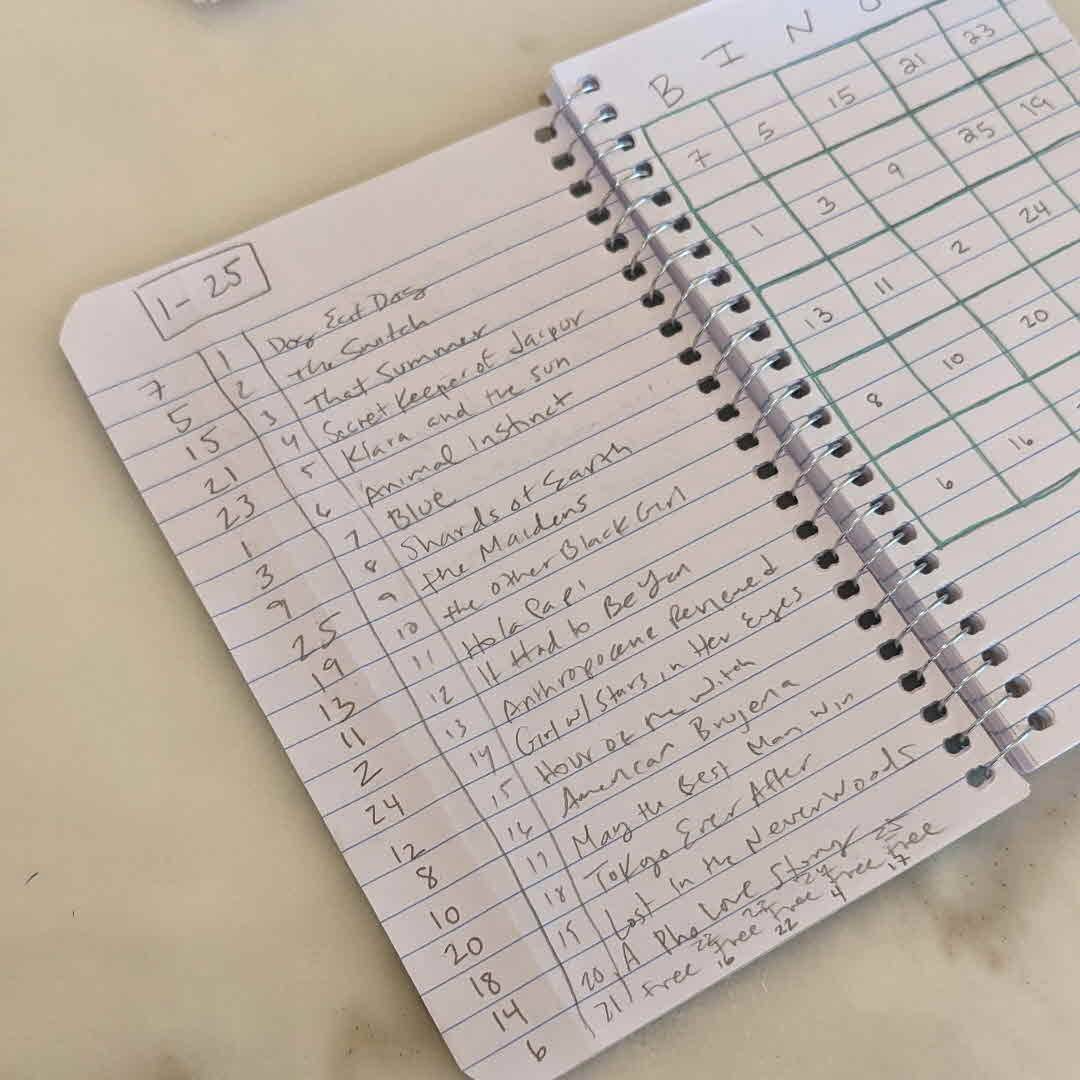 1-25
7 1 Dog Eat Dog
5 2 The Snitch
15 3 That Summer
21 4 Secret Keeper of Jaipur
23 5 Klara and the sun
1 6 Animal Instinct
3 7 Blue
9 8 Shards of Earth
25 9 the Maidens
19 10 the other Black Girl
13 11 Hola Papi
11 12 It Had to Be You
2 13 Anthropocene Reviewed
24 14 Girl w/ Stars in Her Eyes
12 15 Hour of the witch
8 16 American Brujeria
10 17 May the Best Man win
20 18 Tokyo Ever After
18 19 Lost in the Never Woods
14 20 A Pho Love Story
6 21 free 22 free 23 free 24 free 25 free
16 22 4 17
B I N G
7 5 15 21 23
1 3 9 25 19
13 11 2 24
8 10 20
6 16